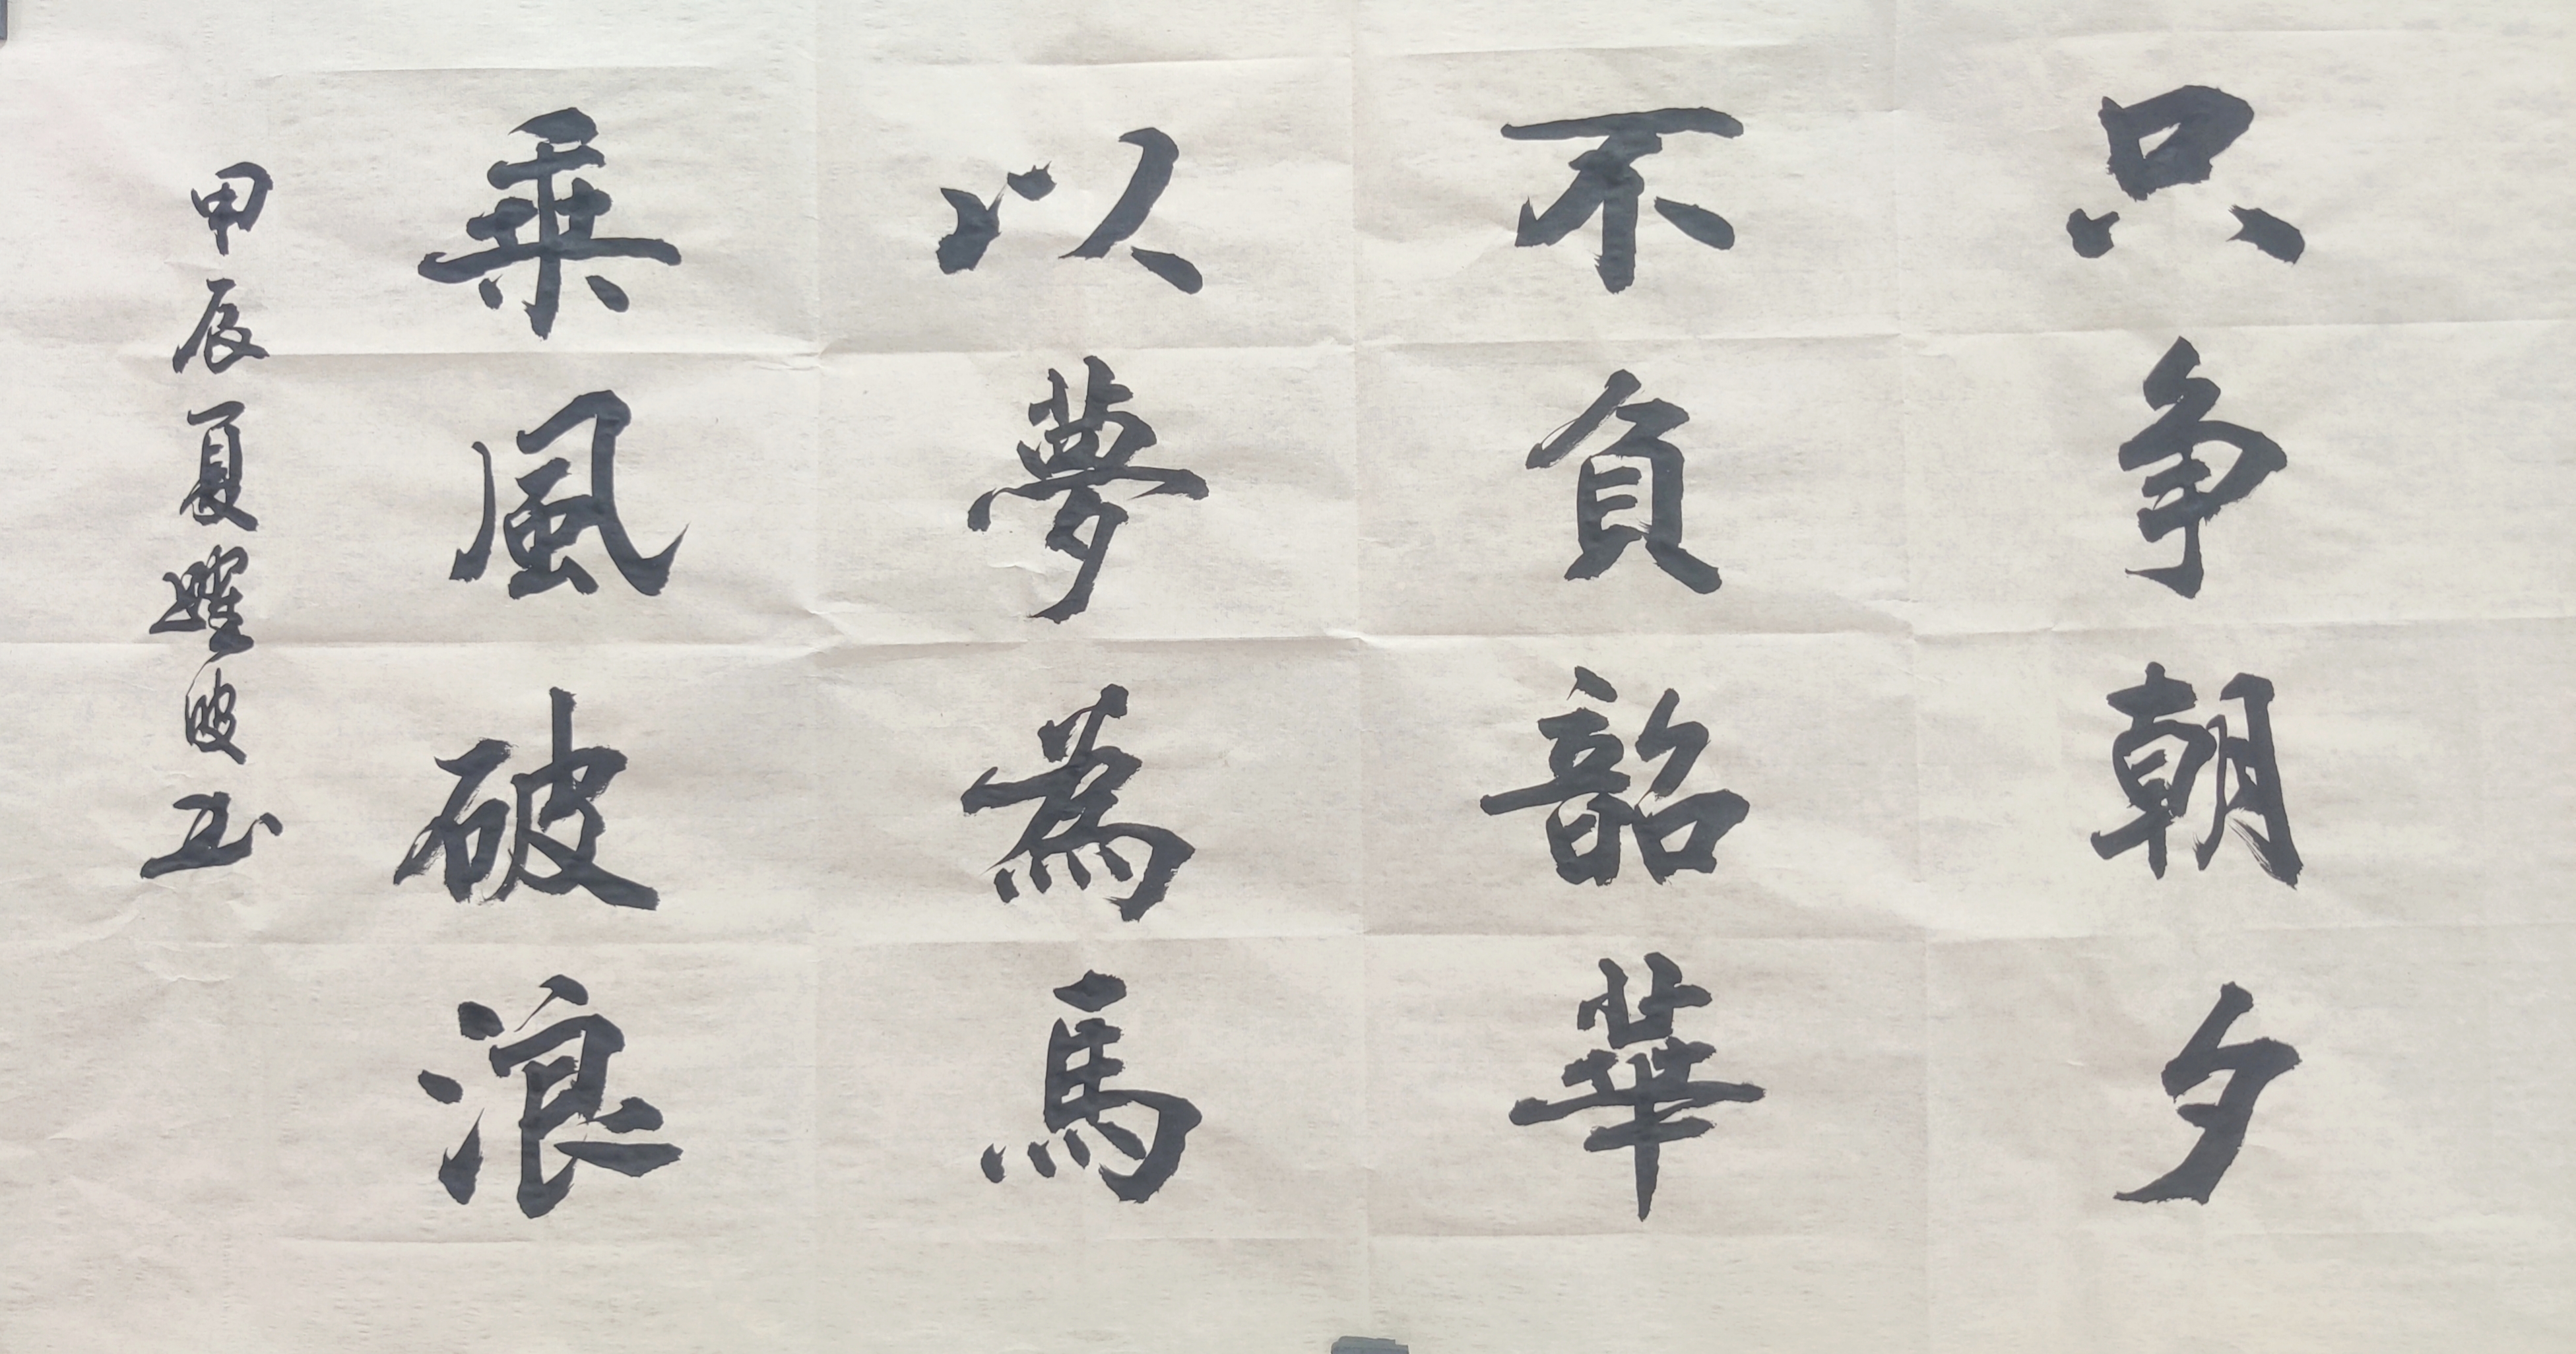 只争朝夕
不負韶華
以夢為馬
乘風破浪
甲辰夏